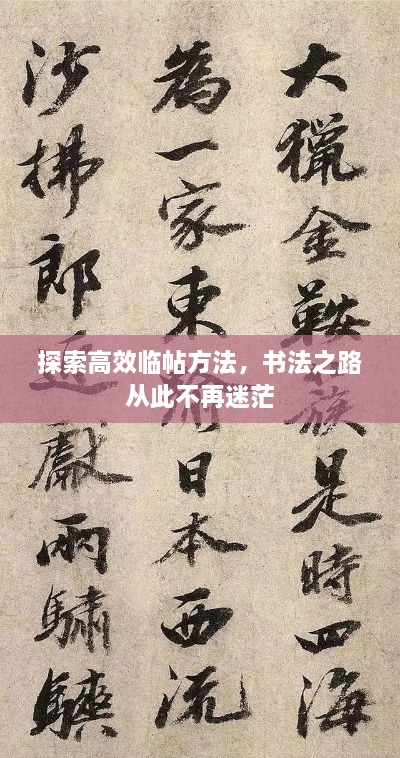 大獵金鞍族是時四海
為一家東日本西流
沙拂郎獻兩驌驦
探索高效临帖方法，书法之路
从此不再迷茫